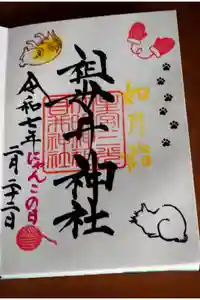 如月詣
祖母井神社
令和七年
にゃんこの日
二月二十二日